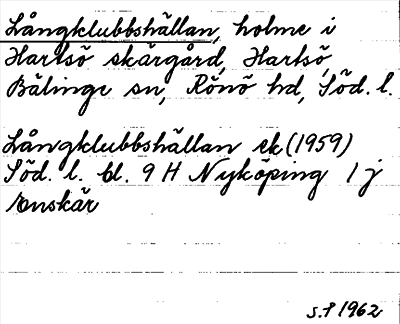 Långklubbshällan, holme i
Hartsö skärgård, Hartsö,
Bälinge sn, Rönö hd, Söd. l.
Långklubbshällan ek (1959)
Söd. l. bl. 9 H Nyköping 1 j
Enskär
S.P 1962